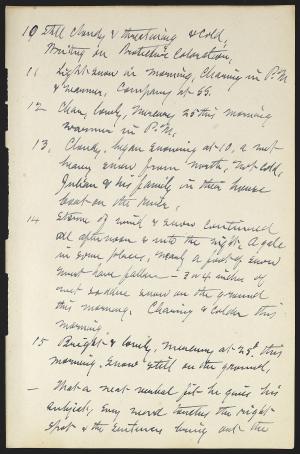 10 Still cloudy & threatening & cold,
Writing on Protective Coloration.
11 Light snow in morning, Clearing in P.M.
& warmer, Company at SS.
12 Clear, lovely, Mercury 25 this morning
warmer in P.M.
13, Cloudy, began snowing at 10, a wet
heavy snow from north, not cold,
Julian & his family in their house
boat on the River,
14 Storm of wind & snow continued
all afternoon & into the night. A gale
in some places, nearly a foot of snow
must have fallen – 3 or 4 inches of
wet snow on the ground
this morning. Clearing & colder this
morning.
15 Bright & lovely, mercury at 25d this
morning. Snow still on the ground,
— What a neat verbal fit he gives his
subject, Every word touches the right
spot & the sentences bring out the